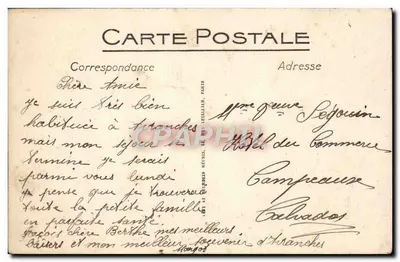 CARTE POSTALE
Correspondance
Adresse
Chère Amie
je suis très bien
habituée à Avranches
mais mon séjour se
termine je serais
parmi vous lundi
je pense que je trouverai
toute la petite famille
en parfaite santé
reçois chère Berthe mes meilleurs
baisers et mon meilleur souvenir d'Avranches
Mme Segouin
Hôtel du Commerce
Campeaux
Calvados